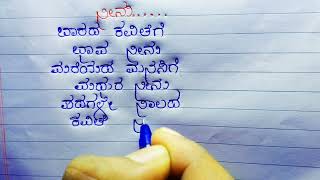 ನೀನು......
ಬಾರದ ಕವಿತೆಗೆ
ಭಾವ ನೀನು
ಮರೆಯದ ಮನಸಿಗೆ
ಮಧುರ ನೀನು
ಪದಗಳೇ ಸಾಲದ
ಕವಿತೆ